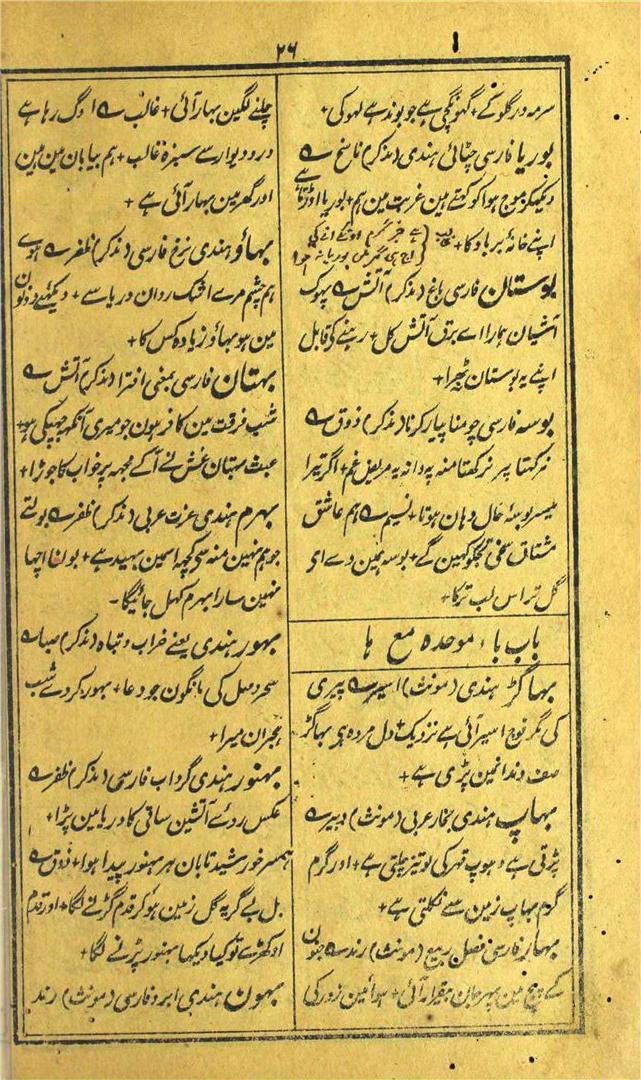 ۲۶
سرمہ در گلو کے + گھونگچی ہے جو بوند ہے لہو کی +
بوریا فارسی چٹائی ہندی (مذکر) ناسخ ؎
دیکھکر موج ہوا کو کہتے ہین غربت مین ہم + بوریا اوڑتا ہے
اپنے خانۂ برباد کا +
ہے خبر گرم اونکے آنے کی
آج ہی گھر مین بوریا نہ ہوا
بوستان فارسی باغ (مذکر) آتش ؎ پہوک
آشیان ہمارا اے برق آتش گل + رہنے کی قابل
اپنے یہ بوستان ٹہرا +
بوسہ فارسی چومنا پیار کرنا (مذکر) ذوق ؎
نہ رکہتا پر نہ رکہتا منہ پہ دانہ یہ مریض غم + اگر تیرا
میسر بوسۂ خال دہان ہوتا + نسیم ؎ ہم عاشق
مشتاق سخی تجکو کہین گے + بوسہ ہمین دے اے
گل تر اس لب تر کا +
باب باء موحدہ مع ہا
بہاگڑ ہندی (مونث) اسیر ؎ پیری
کی مگر فوج اسیر آئی ہے نزدیک + دل مردہ ہو بہاگڑ
صف دندانمین پڑی ہے +
بہاپ ہندی بخار عربی (مونث) دبیر ؎
پڑتی ہے دہوپ قہر کی لو تیز چلتی ہے + اور گرم
گرم بہاپ زمین سے نکلتی ہے +
بہار فارسی فصل ربیع (مونث) رند ؎ جنون
کے جوش مین پہر جان بیقرار آئی + ہوائین زور کی
چلنے لگین بہار آئی + غالب ؎ اوگ رہا ہے
در و دیوار سے سبزہ غالب + ہم بیابان مین ہین
اور گھر مین بہار آئی ہے +
بہاؤ ہندی نرخ فارسی (مذکر) ظفر ؎ ہوے
ہم چشم مرے اشک روان دریا سے + دیکہئے دونون
مین ہو بہاؤ زیادہ کس کا +
بہتان فارسی بمعنی افترا (مذکر) آتش ؎
شب فرقت مین کافر ہون جو میری آنکہ جہپکی ہو +
عبث بہتان غش نے آ کے مجہہ پر خواب کا جوڑا +
بہرم ہندی عزت عربی (مذکر) ظفر ؎ بولتے
جو ہم نہین منہ سی کچہ اسمین بہید ہے + بولنا اچہا
نہین سارا بہرم کہل جائیگا -
بہور ہندی یعنے خراب و تباہ (مذکر) صبا ؎
سحر وصل کی مانگون جو دعا + بہور کر دے شب
ہجران میرا +
بہنور ہندی گرداب فارسی (مذکر) ظفر ؎
عکس روئے آتشین ساقی کا دریا مین پڑا +
ہمسر خورشید تابان ہر بہنور پیدا ہوا + ذوق ؎
بل بے گریہ گل زمین ہو کر قدم گڑنے لگا + اور قدم
اوکھڑے تو کیا دیکہا بہنور پڑنے لگا +
بہون ہندی ابرو فارسی (مونث) رند